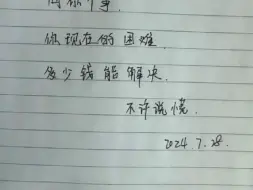 问你个事.
你现在的困难.
多少钱能解决.
不许说谎.
2024.7.28.